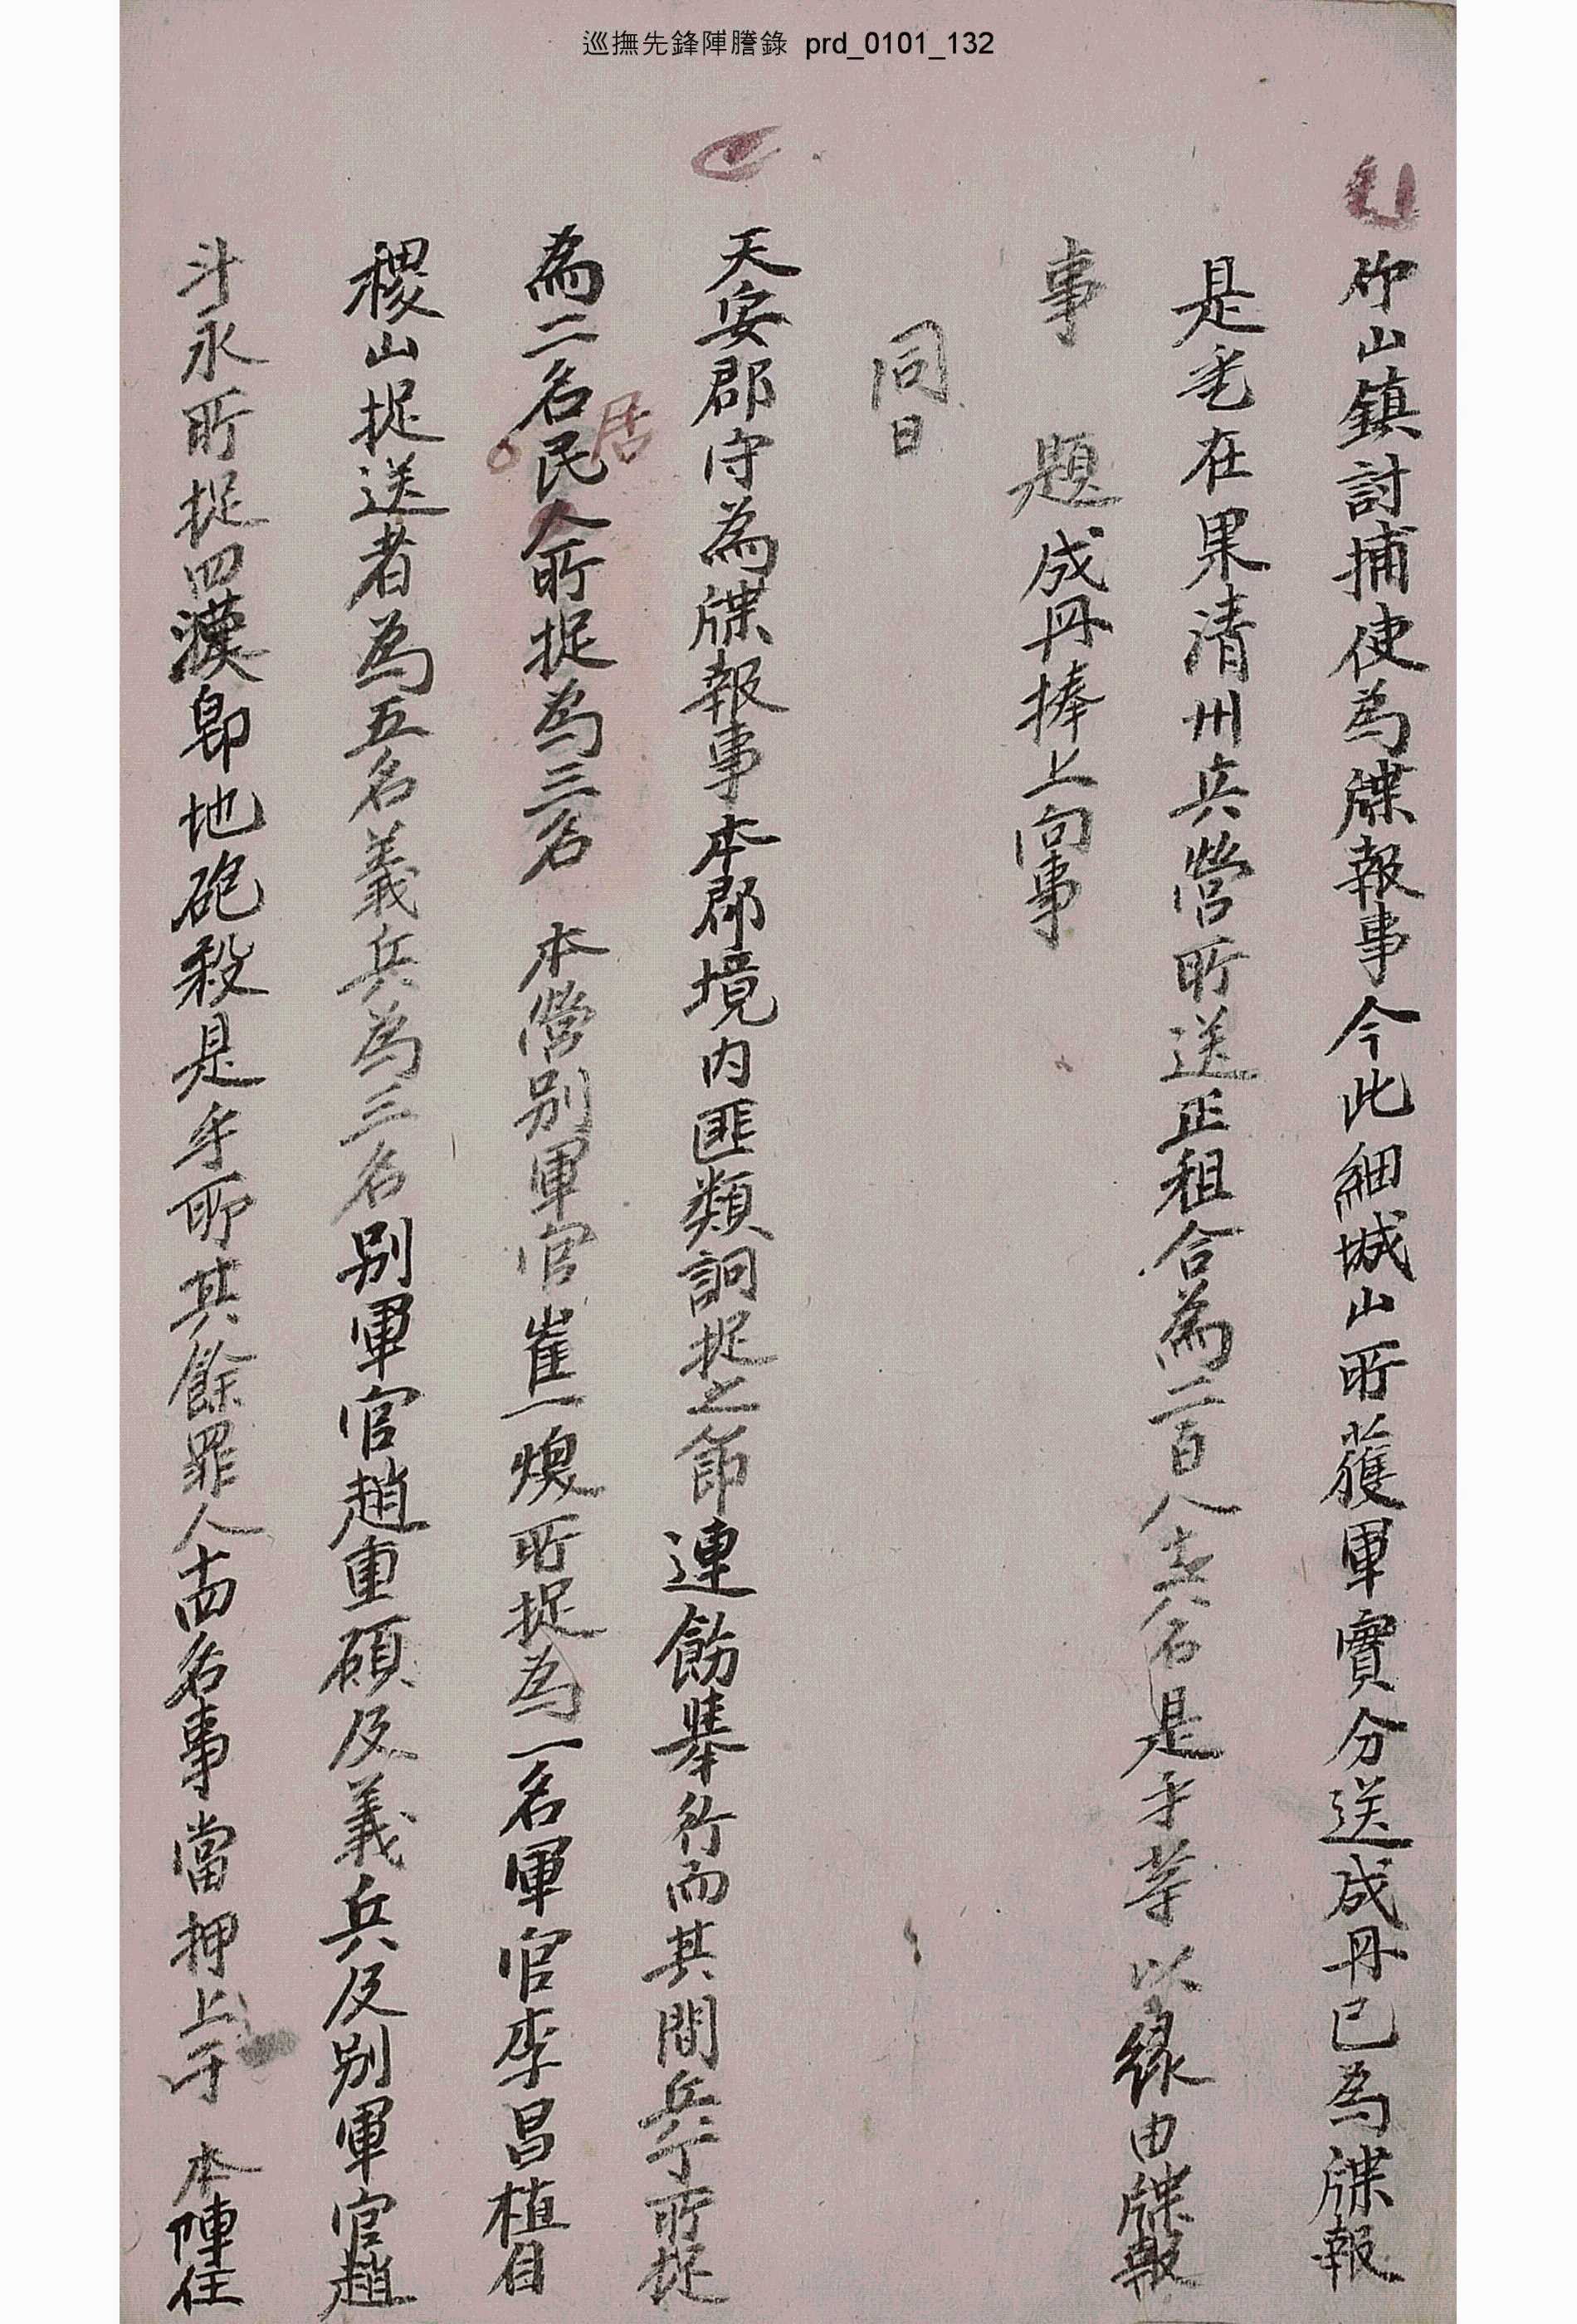 巡撫先鋒陣謄錄 prd_0101_132
竹山鎮討捕使為牒報事今此細城山所獲軍實分送成冊已為牒報
是乎在果清州兵營所送正租合為二百八十六石是乎等以緣由牒報
事 題成冊捧上向事
同日
天安郡守為牒報事本郡境内匪類詗捉之節連飭擧行而其間兵丁所捉
為二名民人所捉為三名 本營別軍官崔一煥所捉為一名軍官李昌植自
居
稷山捉送者為五名義兵為三名別軍官趙重碩及義兵及別軍官趙
斗永所捉四漢卽地砲殺是乎所其餘罪人十四名事當押上于 本陣住